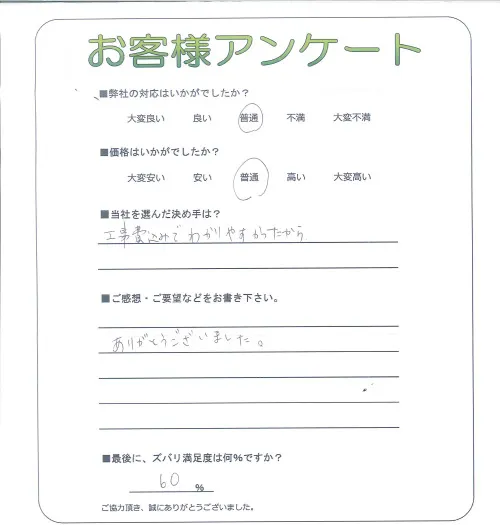 お客様アンケート
■弊社の対応はいかがでしたか？
大変良い 良い 普通 不満 大変不満
■価格はいかがでしたか？
大変安い 安い 普通 高い 大変高い
■当社を選んだ決め手は？
工事費込みでわかりやすかったから
■ご感想・ご要望などをお書き下さい。
ありがとうございました。
■最後に、ズバリ満足度は何％ですか？
60 ％
ご協力頂き、誠にありがとうございました。